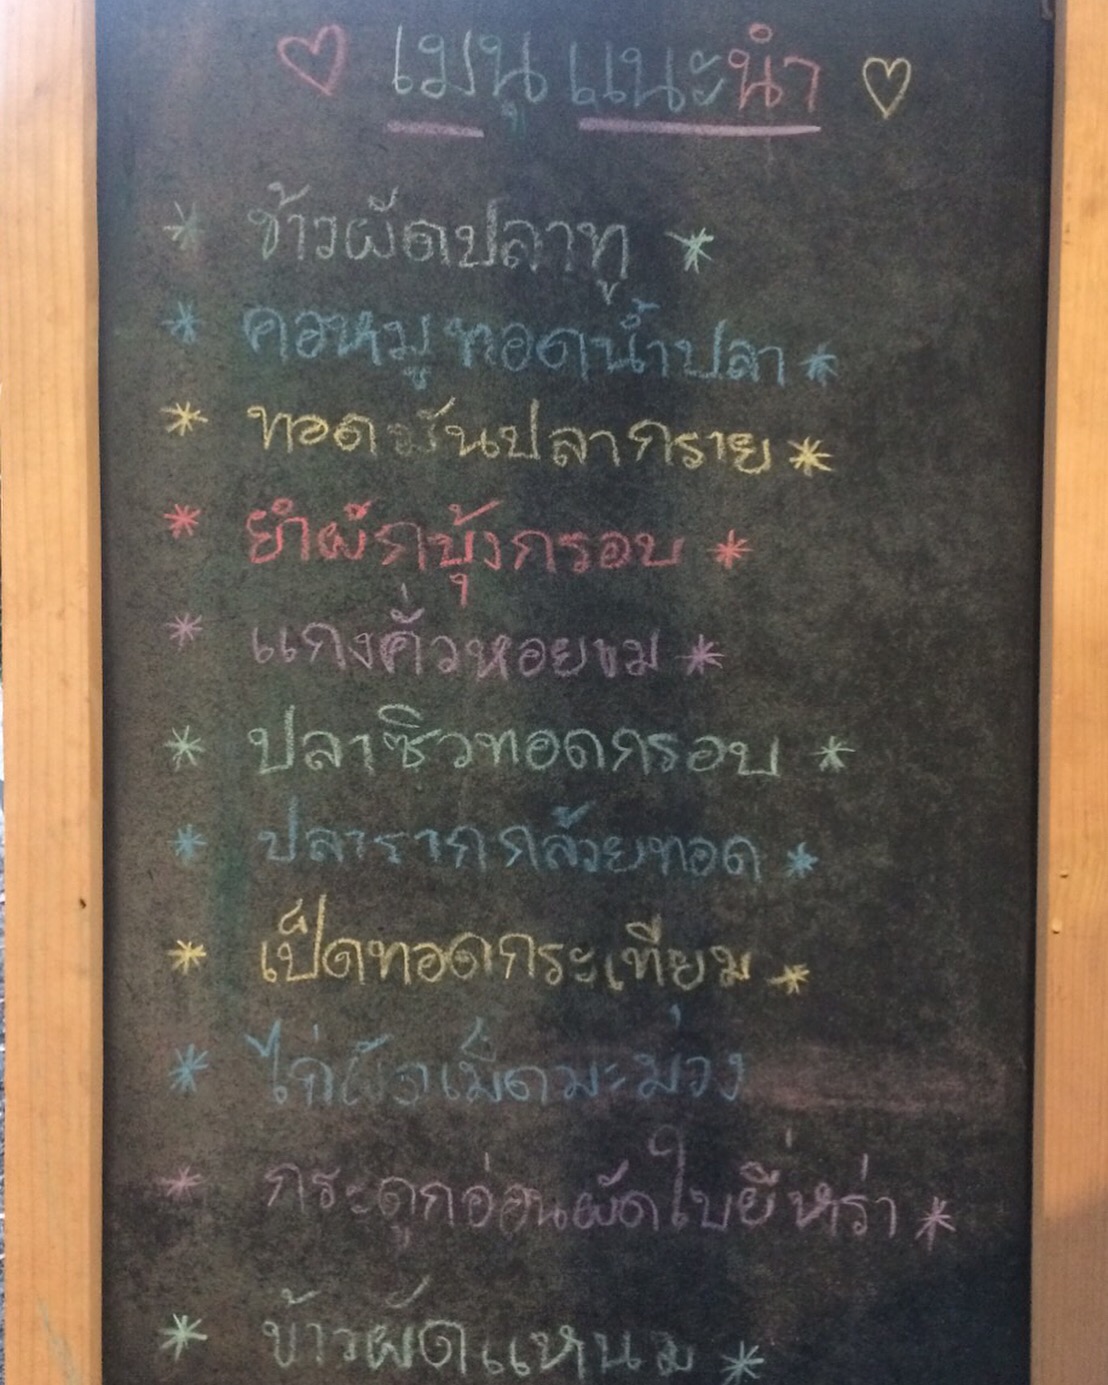 ♡ เมนูแนะนำ ♡
* ข้าวผัดปลาทู *
* คอหมูทอดน้ำปลา *
* ทอดมันปลากราย *
* ยำผักบุ้งกรอบ *
* แกงคั่วหอยขม *
* ปลาซิวทอดกรอบ *
* ปลารากกล้วยทอด *
* เป็ดทอดกระเทียม *
* ไก่ผัดเม็ดมะม่วง
* กระดูกอ่อนผัดใบยี่หร่า *
* ข้าวผัดแหนม *